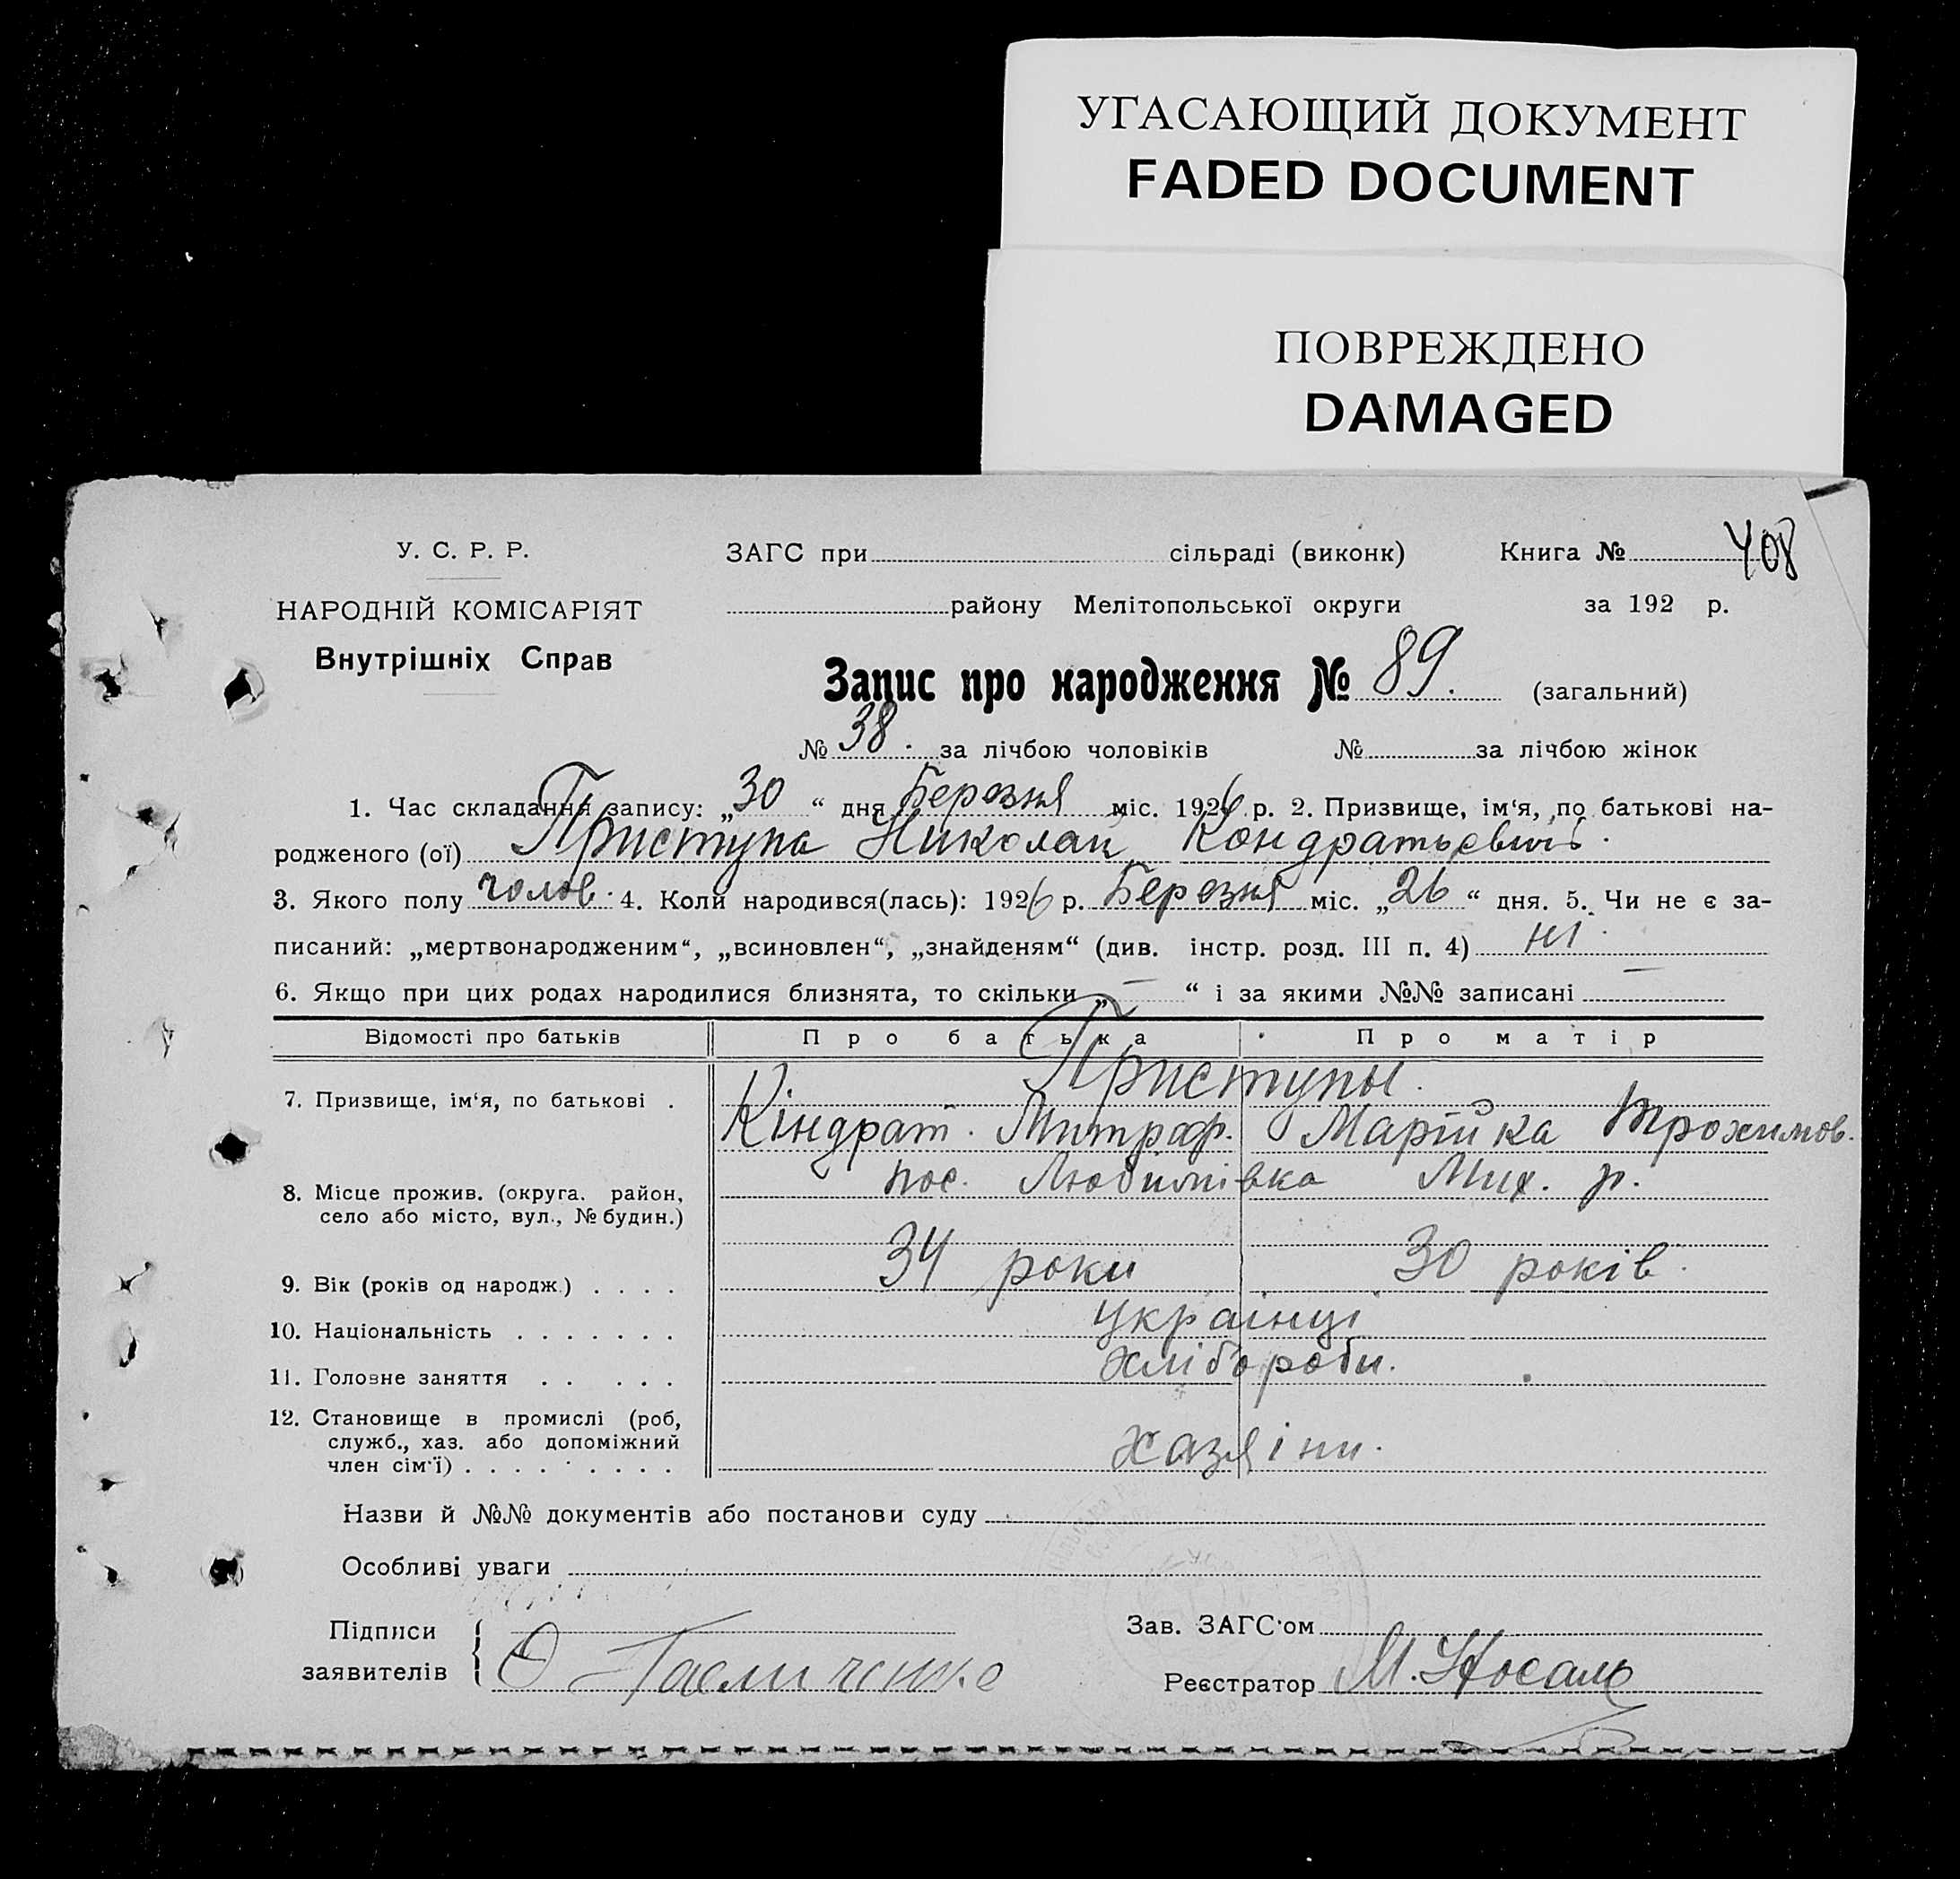 УГАСАЮЩИЙ ДОКУМЕНТ
FADED DOCUMENT
ПОВРЕЖДЕНО
DAMAGED
У. С. Р. Р. ЗАГС при сільраді (виконк) Книга № 408
НАРОДНІЙ КОМІСАРІЯТ району Мелітопольської округи за 192 р.
Внутрішніх Справ
Запис про народження № 89. (загальний)
№ 38. за лічбою чоловіків № за лічбою жінок
1. Час складання запису: „30“ дня Березня міс. 1926 р. 2. Призвище, ім‘я, по батькові на-
родженого (ої) Приступа Николай Кондратьевичъ.
3. Якого полу чолов. 4. Коли народився(лась): 1926 р. Березня міс. „26“ дня. 5. Чи не є за-
писаний: „мертвонародженим“, „всиновлен“, „знайденям“ (див. інстр. розд. III п. 4) ні.
6. Якщо при цих родах народилися близнята, то скільки „—“ і за якими №№ записані —
Відомості про батьків Про батька Про матір
Приступы.
7. Призвище, ім‘я, по батькові .
Кіндрат. Митраф. Марійка Трохимов.
пос. Любимівка Мих. р.
8. Місце прожив. (округа. район,
село або місто, вул., № будин.)
34 роки 30 років.
9. Вік (років од народж.) . . . .
українці
10. Національність . . . . . . .
хлібороби.
11. Головне заняття . . . . .
12. Становище в промислі (роб,
служб., хаз. або допоміжний
член сім‘ї) . . . . . . . . .
хазяїни.
Назви й №№ документів або постанови суду
Особливі уваги
Підписи Зав. ЗАГС‘ом
заявителів Реєстратор М. Носаль